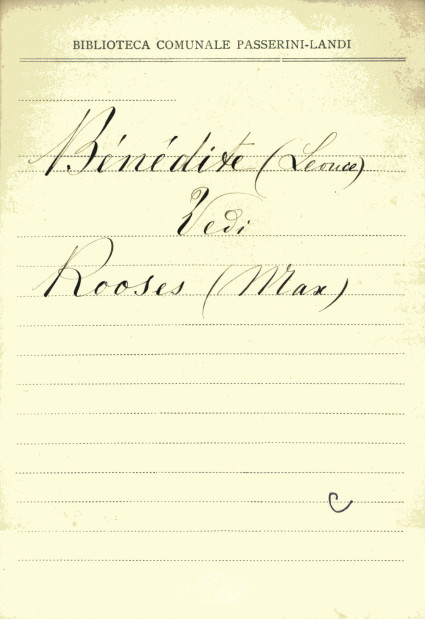 BIBLIOTECA COMUNALE PASSERINI-LANDI
Bénédite (Leonce)
Vedi
Rooses (Max)
C